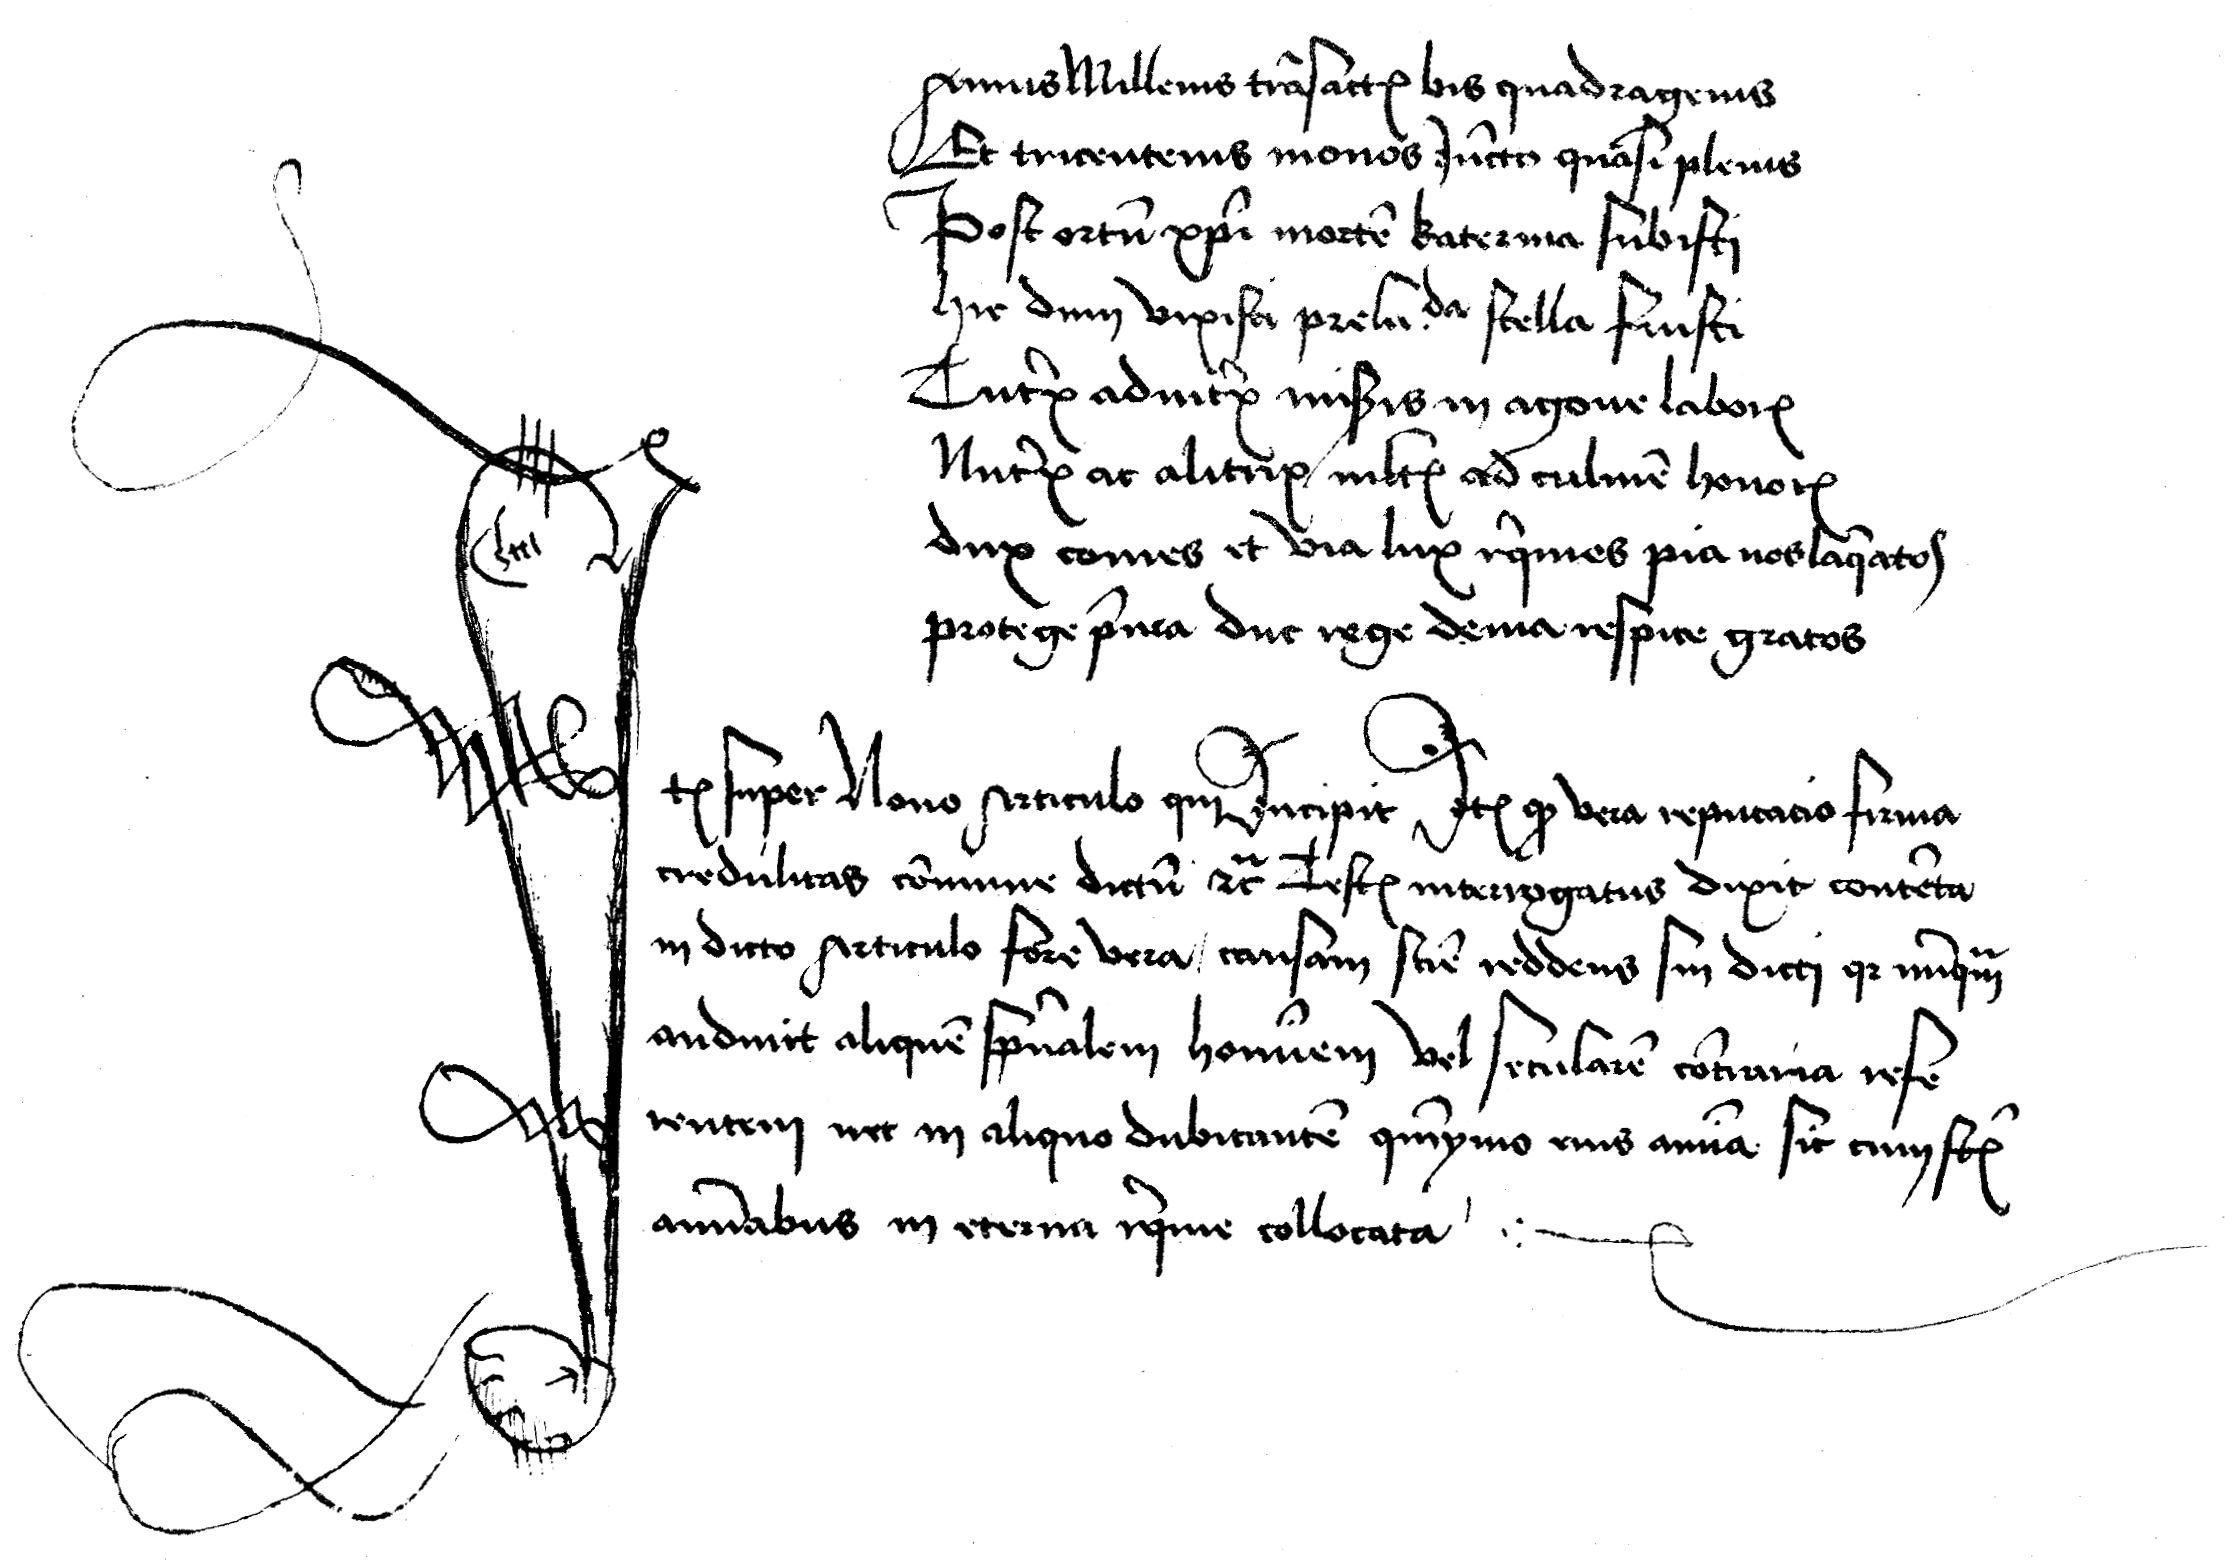 Annis Millenis trãsactꝭ bis quadragenis
Et tricentenis monos Jũcto quasi plenis
Post ortũ xp̃i mortẽ katerina subisti
hic dum vixisti preluc̃da stella fuisti
Tutͥx adiutͥx missis in agone laborꝭ
Nutͥx ac alitrix / mltꝭ ad culmẽ honorꝭ
dux comes et via lux rq̃uies pia nos laq̃atos
protege p̃uia duc rege deuia respice gratos
Jtꝭ super Nono Articulo qui Jncipit Jtꝭ ꝙ vera reputacio firma
credulitas cõmune dictũ ⁊c̃ Testꝭ interrogatus dixit contẽta
in dicto Articulo fore vera / causam sciẽ reddens sui dicti qꝛ nũqͣm
audiuit aliquẽ sp̃ualem homĩem vel secularẽ cõtraria refe
rentem nec in aliquo dubitantẽ quĩymo eius aĩma sit cum sctꝭ
aĩmabus in eterna rq̃uie collocata